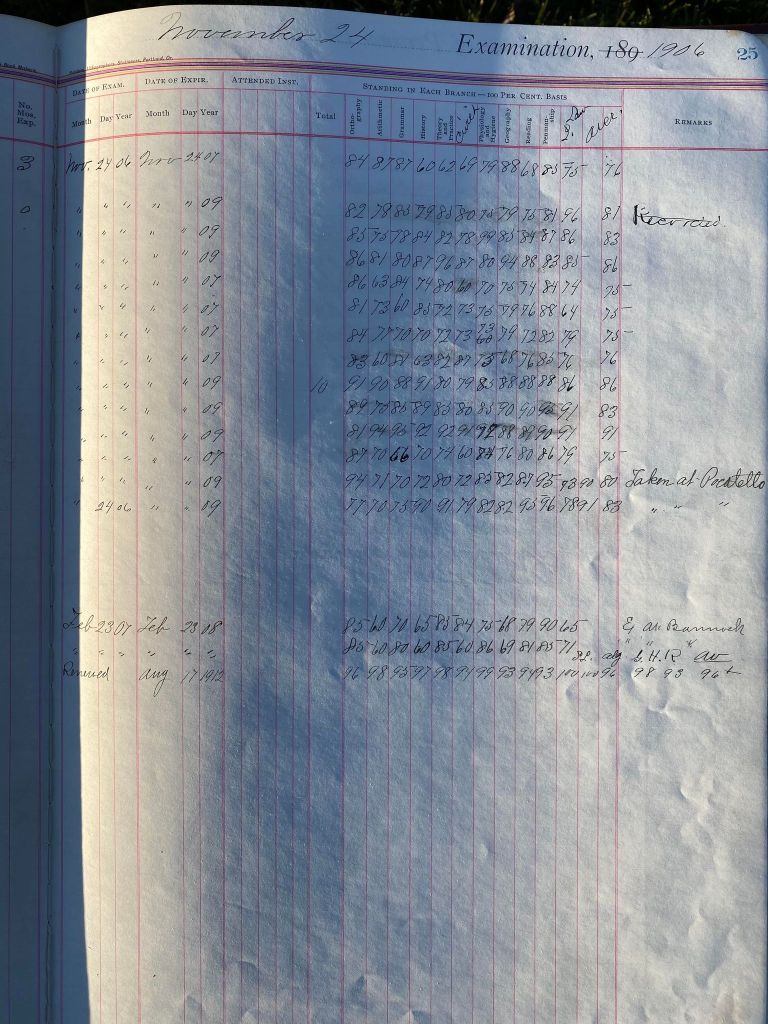 November 24 Examination, 189 1906 25
Date of Exam. Date of Expir. Attended Inst. Standing in Each Branch—100 Per Cent. Basis
No. Mos. Exp. Month Day Year Month Day Year Total Orthography Arithmetic Grammar History Theory and Practice Civil Gov't Physiology and Hygiene Geography Reading Penmanship S. Law Aver. Remarks
3 Nov. 24 06 Nov 24 07 84 87 87 60 62 69 79 88 68 85 75 76
0 " " " " " 09 82 79 85 79 85 80 75 79 75 81 96 81 Recorded
" " " " " 09 85 75 78 84 82 78 99 85 84 87 86 83
" " " " " 09 86 81 80 87 96 87 80 94 88 83 85 86
" " " " " 07 86 63 84 74 80 60 70 75 74 84 74 75
" " " " " 07 81 73 60 85 72 73 75 79 76 88 64 75
" " " " " 07 84 77 70 70 72 73 73 60 79 72 82 79 75
" " " " " 07 83 60 81 63 82 87 75 68 76 85 76 76
" " " " " 09 10 91 90 88 91 80 79 85 88 88 88 86 86
" " " " " 09 89 70 85 89 85 80 85 90 90 95 91 83
" " " " " 09 81 94 95 92 92 91 92 88 89 90 91 91
" " " " " 07 87 70 66 70 74 60 84 76 80 86 79 75
" " " " " 09 94 71 70 72 80 72 85 82 87 95 93 90 80 Taken at Pocatello
" 24 06 " " 09 77 70 75 90 91 79 82 82 95 96 78 91 83 " " "
Feb 23 07 Feb 23 08 85 60 70 65 85 84 75 68 79 90 65 Ex at Bannock
" " " " " " 85 60 80 60 85 60 86 69 81 85 71 " " "
P.L. alg G.H.R av
Renewed Aug 17 1912 96 98 95 97 98 91 99 93 94 93 100 100 96 98 93 96+